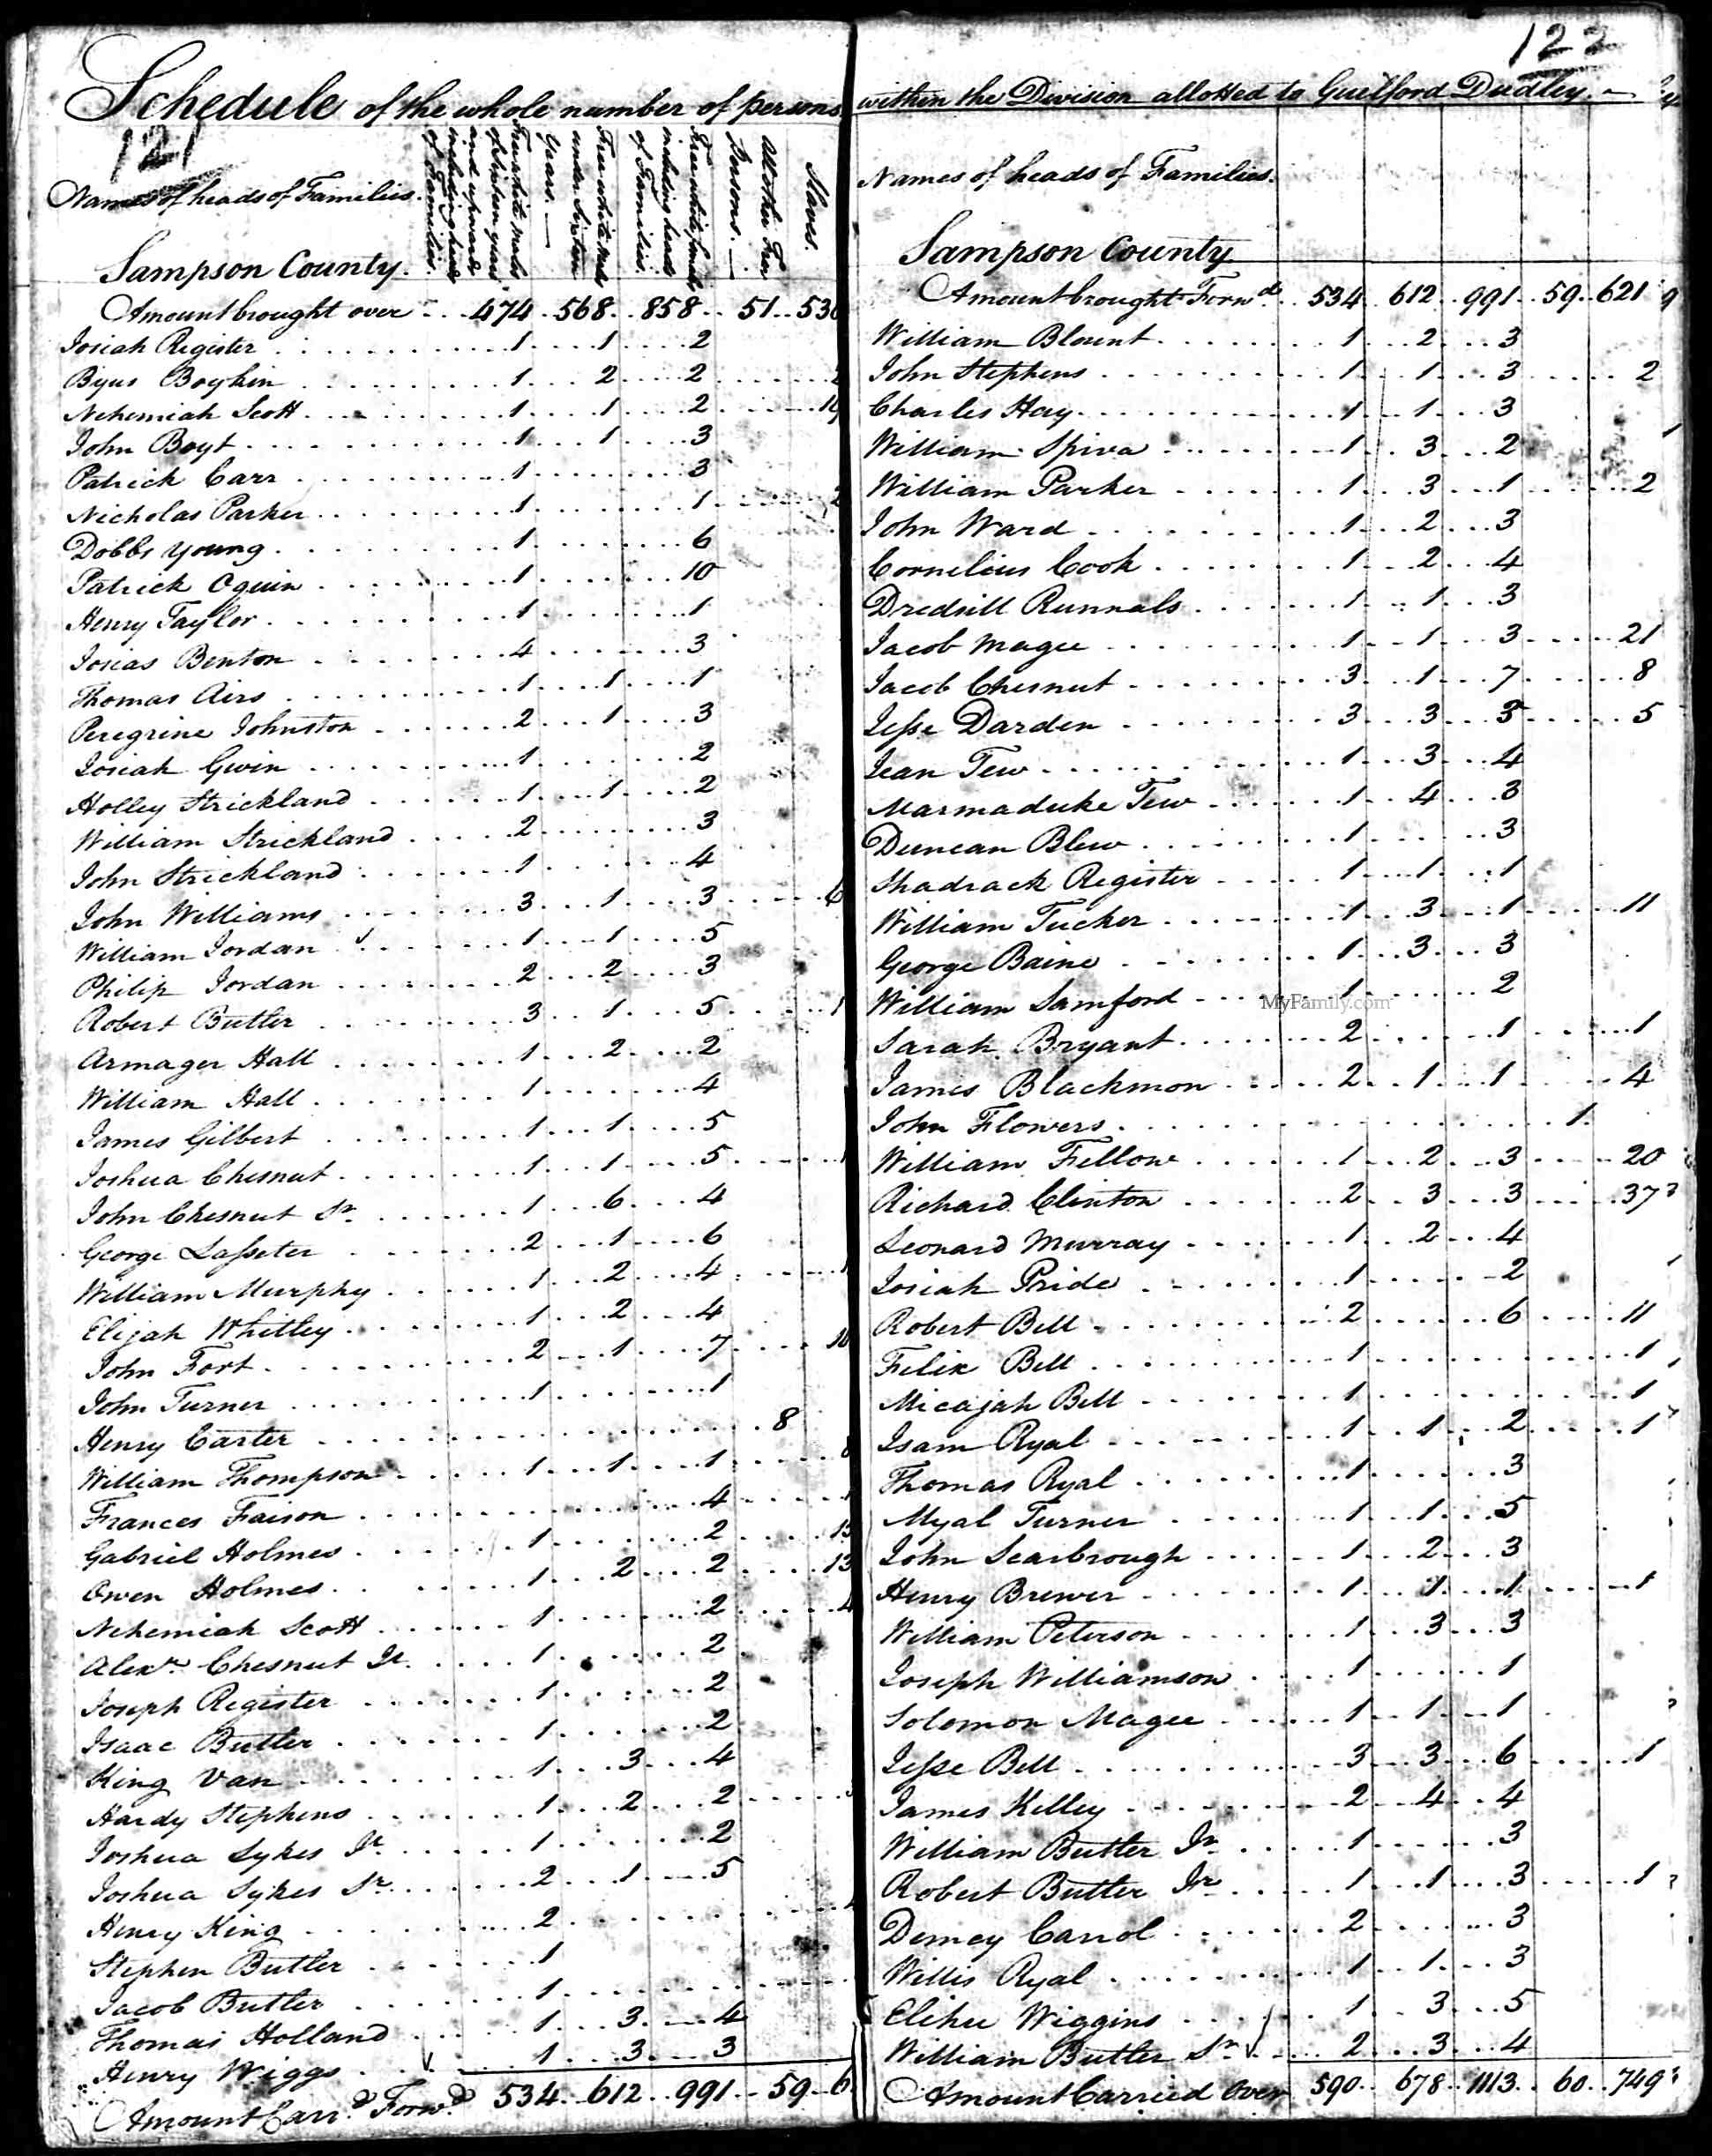 122
Schedule of the whole number of persons within the Division allotted to Guilford Dudley.
121
Names of heads of Families.
Free white males of sixteen years and upwards including heads of Families.
Free white males under sixteen years.
Free white females including heads of Families.
All other Free Persons.
Slaves.
Sampson County.
Amount brought over 474 568 858 51 53
Josiah Register 1 1 2
Byus Boykin 1 2 2
Nehemiah Scott 1 1 2
John Boyt 1 1 3
Patrick Carr 1 3
Nicholas Parker 1 1
Dobbs Young 1 6
Patrick Oquin 1 10
Henry Taylor 1 1
Josias Benton 4 3
Thomas Airs 1 1 1
Peregrine Johnston 2 1 3
Josiah Gwin 1 2
Holley Strickland 1 1 2
William Strickland 2 3
John Strickland 1 4
John Williams 3 1 3 6
William Jordan 1 1 5
Philip Jordan 2 2 3
Robert Butler 3 1 5 1
Armager Hall 1 2 2
William Hall 1 4
James Gilbert 1 1 5
Joshua Chesnut 1 1 5
John Chesnut Sr. 1 6 4
George Lasseter 2 1 6
William Murphy 1 2 4
Elijah Whitley 1 2 4
John Fort 2 1 7
John Turner 1 1
Henry Carter 8
William Thompson 1 1 1
Frances Faison 4
Gabriel Holmes 1 2
Owen Holmes 1 2 2 13
Nehemiah Scott 1 2 4
Alexr. Chesnut Jr. 1 2
Joseph Register 1 2
Isaac Butler 1 2
King Van 1 3 4
Hardy Stephens 1 2 2
Joshua Sykes Jr. 1 2
Joshua Sykes Sr. 2 1 5
Henry King 2
Stephen Butler 1
Jacob Butler 1
Thomas Holland 1 3 4
Henry Wiggs 1 3 3
Amount Carrd. Forwd. 534 612 991 59 6
Names of heads of Families.
Sampson County
Amount brought Forwd. 534 612 991 59 621
William Blount 1 2 3
John Stephens 1 1 3 2
Charles Hay 1 1 3
William Spiva 1 3 2
William Parker 1 3 1 2
John Ward 1 2 3
Cornelius Cook 1 2 4
Dredsill Runnals 1 1 3
Jacob Magee 1 1 3 21
Jacob Chesnut 3 1 7 8
Jesse Darden 3 3 3 5
Jean Tew 1 3 4
Marmaduke Tew 1 4 3
Duncan Blew 1 3
Shadrack Register 1 1 1
William Tucker 1 3 1 11
George Baine 1 3 3
William Samford 1 2
MyFamily.com
Sarah Bryant 2 1 1
James Blackmon 2 1 1 4
John Flowers 1
William Fellow 1 2 3 20
Richard Clinton 2 3 3 37
Leonard Murray 1 2 4
Josiah Pride 1 2
Robert Bell 2 6 11
Felix Bell 1 1
Micajah Bell 1 1
Isam Ryal 1 1 2 1
Thomas Ryal 1 3
Myal Turner 1 1 5
John Scarbrough 1 2 3
Henry Brewer 1 1 1 1
William Peterson 1 3 3
Joseph Williamson 1 1
Solomon Magee 1 1 1
Jesse Bell 3 3 6 1
James Kelley 2 4 4
William Butler Jr. 1 3
Robert Butler Jr. 1 1 3 1
Demcy Carrol 2 3
Willis Ryal 1 1 3
Elihu Wiggins 1 3 5
William Butler Sr. 2 3 4
Amount Carried Over 590 678 1113 60 749